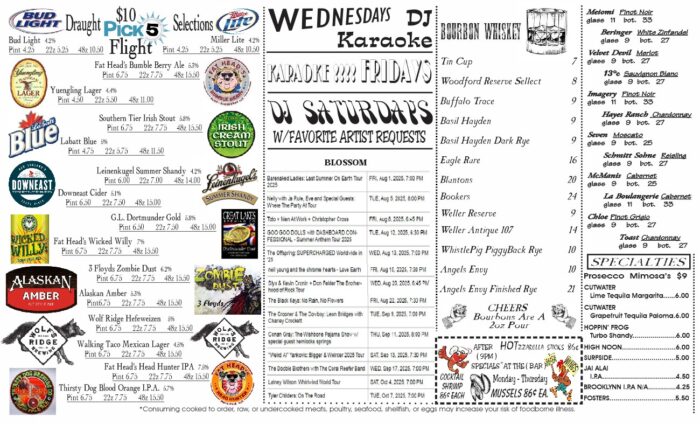 BUD LIGHT
Draught $10 Pick 5 Flight Selections
Lite
Bud Light 4.2%
Pint 4.25 22z 5.25 48z 10.50
Miller Lite 4.2%
Pint 4.25 22z 5.25 48z 10.50
Yuengling
LAGER
Fat Head's Bumble Berry Ale 5.3%
Pint 6.75 22z 7.75 48z 15.50
FAT HEAD'S
Yuengling Lager 4.4%
Pint 4.50 22z 5.50 48z 11.00
Labatt Blue
Southern Tier Irish Stout 5.8%
Pint 6.75 22z 7.75 48z 15.50
IRISH CREAM STOUT
Labatt Blue 5%
Pint 4.75 22z 5.75 48z 11.50
DOWNEAST
Leinenkugel Summer Shandy 4.2%
Pint 6.00 22z 7.00 48z 14.00
Leinenkugel's
SUMMER SHANDY
Downeast Cider 5.1%
Pint 6.75 22z 7.75 48z 15.50
WICKED WILLY
G.L. Dortmunder Gold 5.8%
Pint 6.75 22z 7.75 48z 15.50
GREAT LAKES
Dortmunder Gold
Fat Head's Wicked Willy 7%
Pint 6.75 22z 7.75 48z 15.50
ALASKAN
AMBER
3 Floyds Zombie Dust 6.2%
Pint 6.75 22z 7.75 48z 15.50
ZOMBIE DUST
3 Floyds
Alaskan Amber 5.3%
Pint 6.75 22z 7.75 48z 15.50
WOLF'S RIDGE BREWING
Wolf Ridge Hefeweizen 5%
Pint 6.75 22z 7.75 48z 15.50
WOLF'S RIDGE BREWING
Walking Taco Mexican Lager 4.5%
Pint 6.75 22z 7.75 48z 15.50
Fat Head's Head Hunter IPA 7.5%
Pint 6.75 22z 7.75 48z 15.50
FAT HEAD'S
HEAD HUNTER
Thirsty Dog Blood Orange I.P.A. 5.7%
Pint 6.75 22z 7.75 48z 15.50
WEDNESDAYS DJ
Karaoke
KARAOKE !!!! FRIDAYS
DJ SATURDAYS
W/FAVORITE ARTIST REQUESTS
BLOSSOM
Barenaked Ladies: Last Summer On Earth Tour 2025 FRI, Aug 1, 2025, 7:00 PM
Nelly with Ja Rule, Eve and Special Guests: Where The Party At Tour TUE, Aug 5, 2025, 8:00 PM
Toto + Men At Work + Christopher Cross FRI, Aug 8, 2025, 6:45 PM
GOO GOO DOLLS with DASHBOARD CONFESSIONAL - Summer Anthem Tour 2025 TUE, Aug 12, 2025, 4:30 PM
The Offspring: SUPERCHARGED Worldwide in '25 WED, Aug 13, 2025, 7:00 PM
neil young and the chrome hearts - Love Earth FRI, Aug 15, 2025, 7:30 PM
Styx & Kevin Cronin + Don Felder The Brotherhood of Rock Tour WED, Aug 20, 2025, 6:45 PM
The Black Keys: No Rain, No Flowers FRI, Aug 22, 2025, 7:30 PM
The Crooner & The Cowboy: Leon Bridges with Charley Crockett TUE, Sep 9, 2025, 7:00 PM
Conan Gray: The Wishbone Pajama Show w/ special guest hemlocke springs THU, Sep 11, 2025, 8:00 PM
"Weird Al" Yankovic: Bigger & Weirder 2025 Tour SAT, Sep 13, 2025, 7:30 PM
The Doobie Brothers with The Coral Reefer Band WED, Sep 17, 2025, 7:00 PM
Lainey Wilson: Whirlwind World Tour SAT, Oct 4, 2025, 7:00 PM
Tyler Childers: On The Road TUE, Oct 7, 2025, 7:00 PM
BOURBON WHISKEY
Tin Cup 7
Woodford Reserve Sellect 8
Buffalo Trace 9
Basil Hayden 9
Basil Hayden Dark Rye 9
Eagle Rare 16
Blantons 20
Bookers 24
Weller Reserve 9
Weller Antique 107 14
WhistlePig PiggyBack Rye 10
Angels Envy 10
Angels Envy Finished Rye 21
CHEERS
Bourbons Are A
2oz Pour
AFTER (9PM) HOT MOZZARELLA STICKS 86¢
SPECIALS AT THE ( BAR )
COCKTAIL SHRIMP 86¢ EACH
Monday - Thursday
MUSSELS 86¢ EA.
Meiomi Pinot Noir
glass 11 bot. 33
Beringer White Zinfandel
glass 9 bot. 27
Velvet Devil Merlot
glass 9 bot. 27
13°c Sauvignon Blanc
glass 9 bot. 27
Imagery Pinot Noir
glass 11 bot. 33
Hayes Ranch Chardonnay
glass 9 bot. 27
Seven Moscato
glass 9 bot. 25
Schmitt Sohne Reisling
glass 9 bot. 27
McManis Cabernet
glass 9 bot. 25
La Boulangerie Cabernet
glass 11 bot. 33
Chloe Pinot Grigio
glass 9 bot. 27
Toast Chardonnay
glass 9 bot. 27
SPECIALTIES
Prosecco Mimosa's $9
CUTWATER
Lime Tequila Margarita......6.00
CUTWATER
Grapefruit Tequila Paloma.6.00
HOPPIN' FROG
Turbo Shandy...............6.00
HIGH NOON...................6.00
SURFSIDE......................5.00
JAI ALAI
I.PA............................4.50
BROOKLYN I.PA N/A......4.25
POSTERS......................5.50
*Consuming cooked to order, raw, or undercooked meats, poultry, seafood, shellfish, or eggs may increase your risk of foodborne illness.